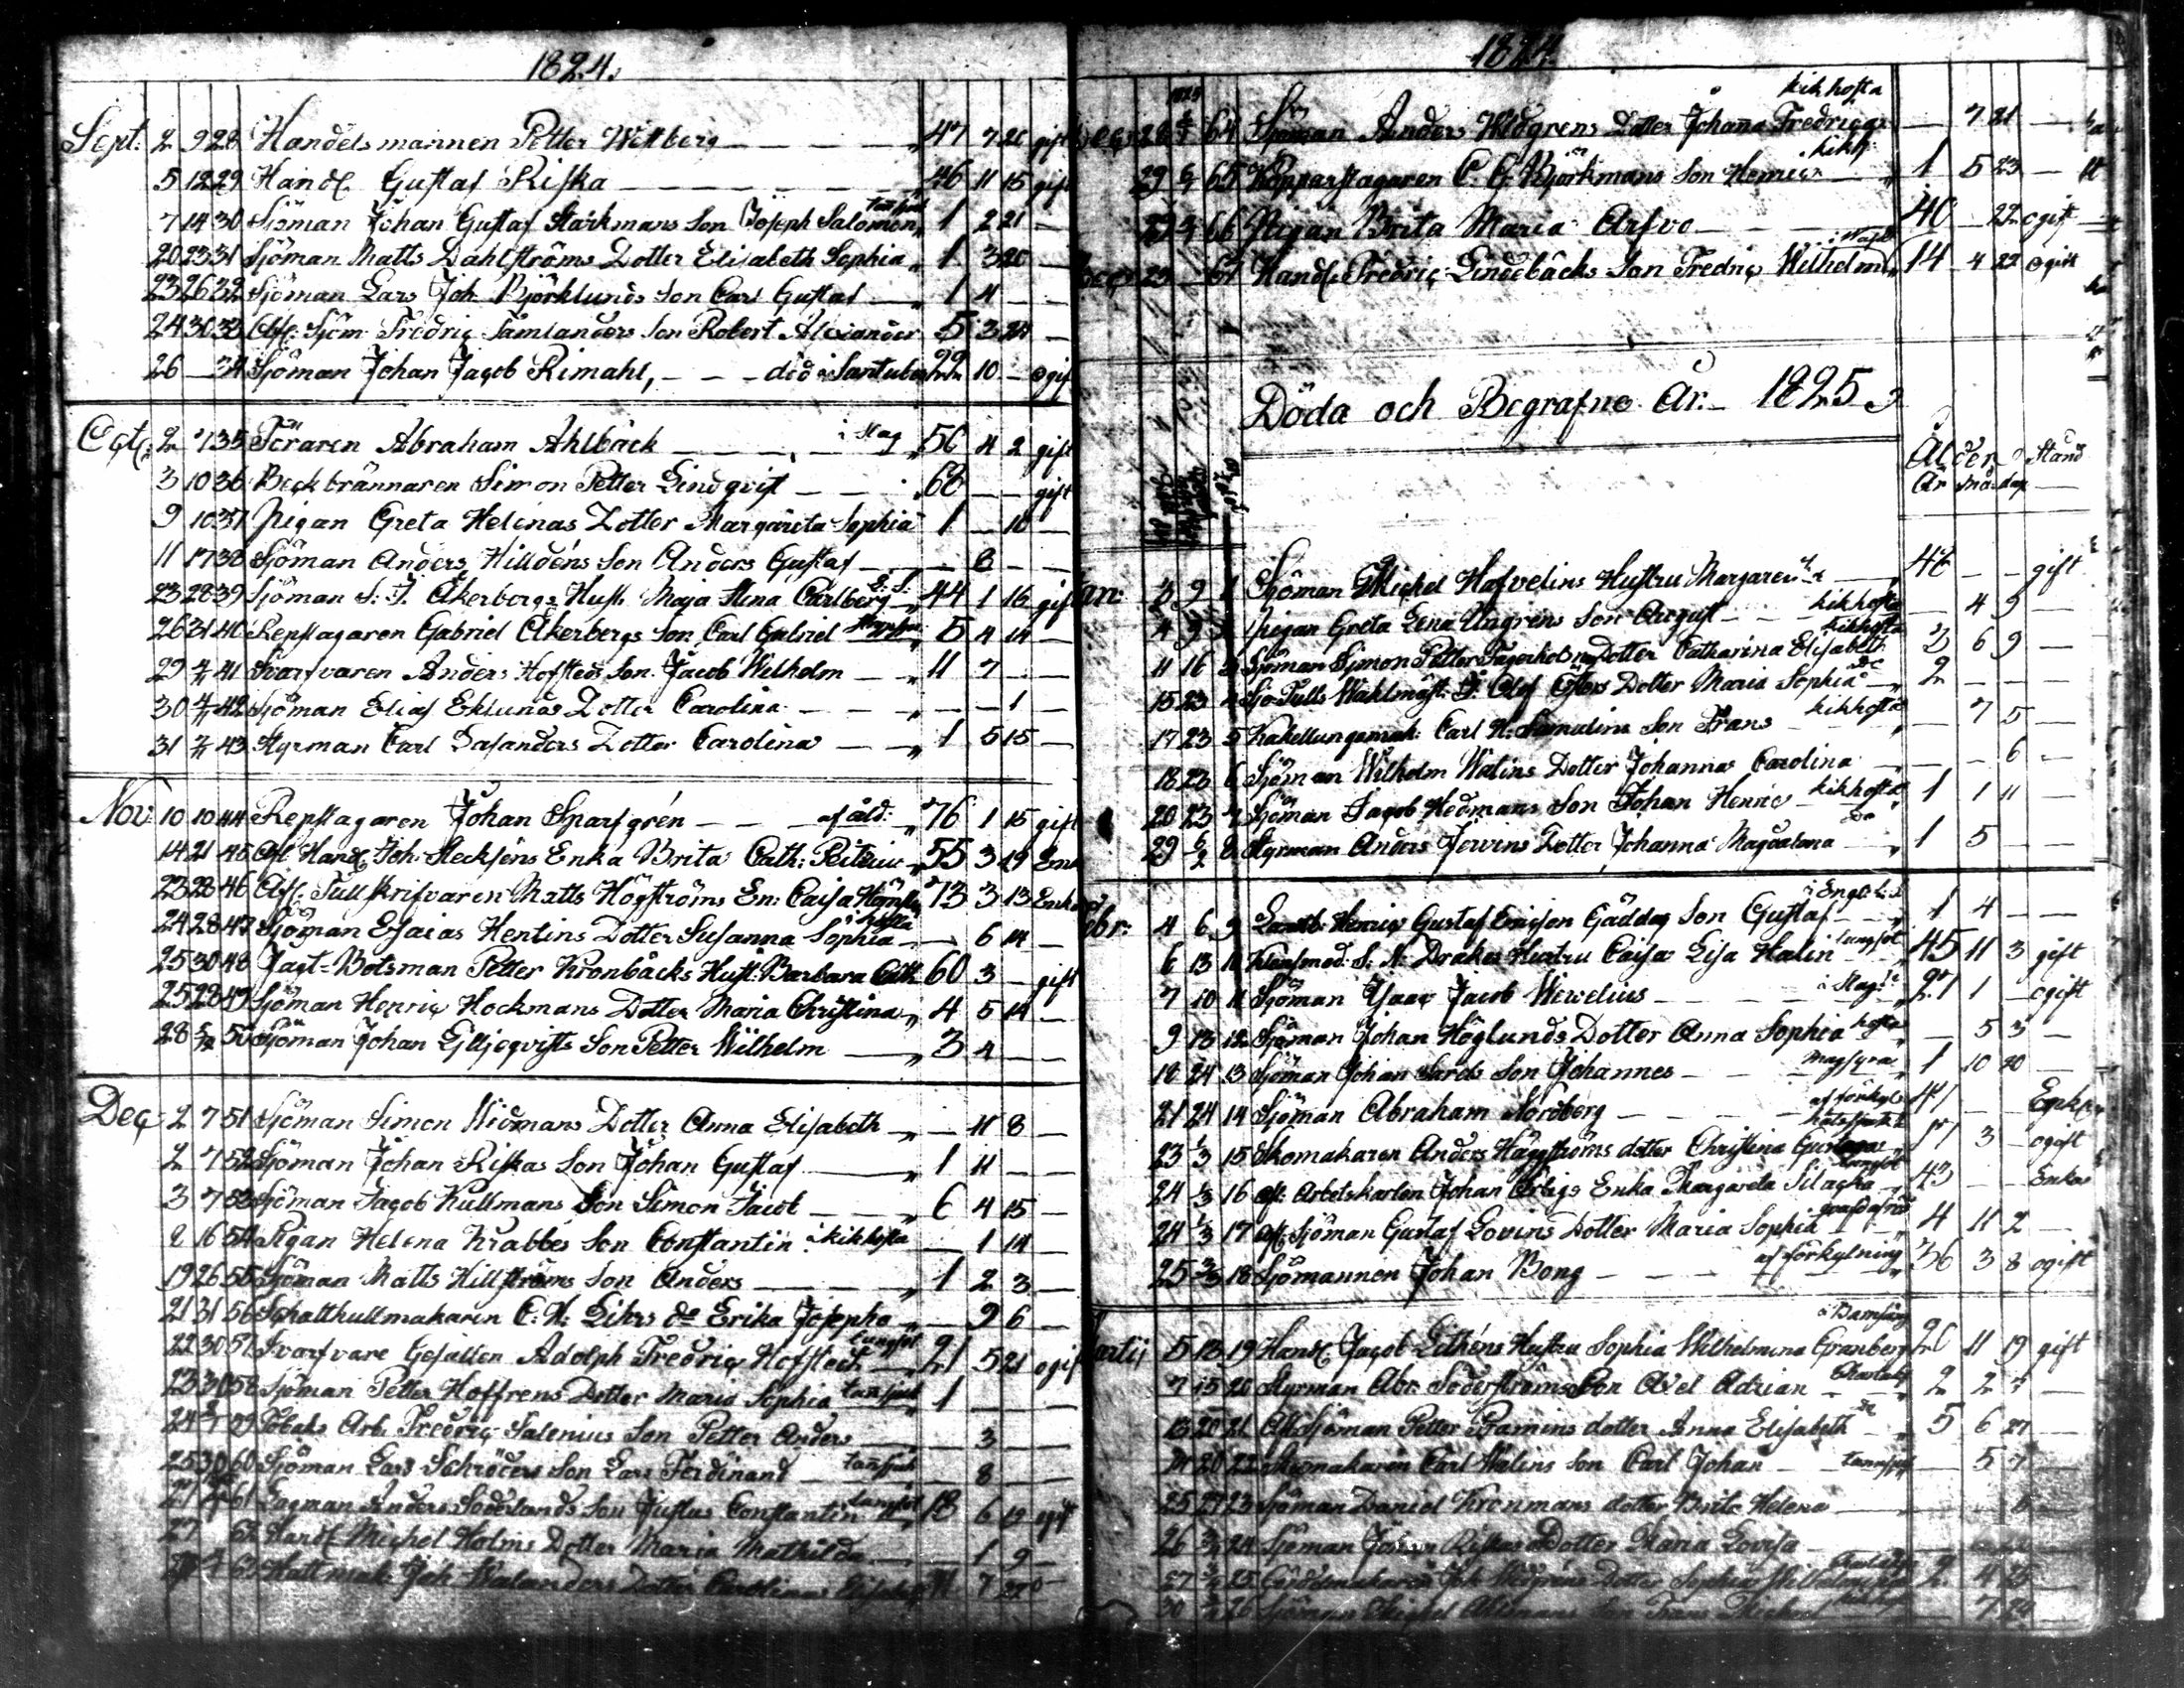 1824.
Sept: 2 9 28 Handelsmannen Petter Wettberg — — — „ 47 7 26 gift
5 12 29 Handl. Gustaf Riska — — — „ 46 11 15 gift
7 14 30 Sjöman Johan Gustaf Starkmans Son Joseph Salomon „ 1 2 21 —
20 23 31 Sjöman Matts Dahlströms Dotter Elisabeth Sophia „ 1 3 20 —
23 26 32 Sjöman Lars Joh. Björklunds Son Carl Gustaf — „ 1 4 — —
24 30 33 Afl. Sjöm. Fredric Tamlanders Son Robert Alexander 5 3 24 —
26 — 34 Sjöman Johan Jacob Rimahl, — — död i 22 10 — ogift
Oct: 2 7 35 Föraren Abraham Ahlbäck — — i slag „ 50 4 2 gift
3 10 36 Beckbrännaren Simon Petter Lindqvist — — „ 68 — — gift
9 10 37 Pigan Greta Helenas Dotter Margareta Sophia 1 — 10 —
11 17 38 Sjöman Anders Hilldéns Son Anders Gustaf — — 8 — —
23 28 39 Sjöman S. J. Åkerbergs Hust. Maja Stina Carlberg „ 44 1 16 gift
26 31 40 Repslagaren Gabriel Åkerbergs Son Carl Gabriel 5 4 14 —
29 41 Svarfvaren Anders Hofsteds Son Jacob Wilhelm — „ 11 7 — —
30 42 Sjöman Elias Eklunds Dotter Carolina — — „ — — 1 —
31 43 Styrman Carl Dotter Carolina — — „ 1 5 15 —
Nov 10 10 44 Repslagaren Johan Sparfgrén — — af åld: „ 76 1 15 gift
14 21 45 Afl Handl. Joh: Enka Brita Cath: „ 55 3 29 Enk
23 28 46 Afl. Tullskrifvaren Matts Högströms En: Caisa 73 3 13 Enka
24 28 47 Sjöman Esaias Hentins Dotter Susanna Sophia — — 6 14 —
25 30 48 Jagt-Botsman Petter Kronbäcks Hust: Barbara Cath 60 3 — gift
25 28 49 Sjöman Henric Hockmans Dotter Maria Christina „ 4 5 14 —
28 50 Sjöman Johan Liljeqvists Son Petter Wilhelm — „ 3 4 — —
Dec 2 7 51 Sjöman Simon Widmans Dotter Anna Elisabeth — „ — 11 8 —
2 7 52 Sjöman Johan Riskas Son Johan Gustaf — „ 1 11 — —
3 7 53 Sjöman Jacob Kullmans Son Simon Jacob — — „ 6 4 15 —
16 54 Pigan Helena Krabbes Son Constantin i kikhosta — 1 14 —
19 26 55 Sjöman Matts Hillströms Son Anders — — „ 1 2 3 —
21 31 56 C. H. Lihrs do Erika Josepha „ — 9 6 —
22 30 57 Svarfvare Gesällen Adolph Fredric Hofsted lungsot „ 21 5 21 ogift
23 30 58 Sjöman Petter Hoffrens Dotter Maria Sophia 1 — — —
24 59 Tobaks Arb. Fredric Salenius Son Petter Anders — — 3 — —
25 30 60 Sjöman Lars Schröders Son Lars Ferdinand — — 8 — —
27 61 Anders Söderlunds Son Justus Constantin lungsot 18 6 12 ogift
27 62 Handl. Michel Holms Dotter Maria Mathilda — — 1 9 —
63 Hattmak. Joh. Dotter 7
1824.
28 64 Sjöman Anders Widgrens Dotter Johanna Fredrica kikhosta — 7 21 —
29 65 Kopparslagaren C. G. Björkmans Son Henric kikh: „ 1 5 23 —
66 Pigan Brita Maria Arfvo — — 40 — 22 ogift
Dec 23 — 67 Handl. Fredric Lindebäcks Son Fredric Wilhelm „ 14 4 22 ogift
Döda och Begrafne År 1825.
Ålder Stånd
År må. dag.
Jan: 2 9 1 Sjöman Michel Hafvelins Hustru Margareta — 48 — — gift
4 9 Pigan Greta Lena Ungrens Son August — kikhosta — 4 9 —
11 16 3 Sjöman Simon Petter Fagerholms Dotter Catharina Elisabeth kikhosta 3 6 9 —
15 23 4 Sjö Tulls J. Olof Dotter Maria Sophia do „ 2 — — —
17 23 5 Kakelungsmak: Carl H. Son Frans kikhosta „ — 7 5 —
18 23 6 Sjöman Wilhelm Walins Dotter Johanna Carolina — — — 6 —
20 23 7 Sjöman Jacob Hedmans Son Johan Henric kikhosta „ 1 1 11 —
29 8 Styrman Anders Jervins Dotter Johanna Magdalena do „ 1 5 — —
Febr: 4 6 9 Henric Gustaf Ericson Gäddas Son Gustaf — „ 1 4 — —
6 13 10 S. N. Drakes Hustru Caisa Lisa Halin lungsot „ 45 11 3 gift
7 10 11 Sjöman Isaac Jacob Wewelius — — i slag „ 27 1 — ogift
9 13 12 Sjöman Johan Höglunds Dotter Anna Sophia hosta „ — 5 3 —
18 24 13 Sjöman Johan Son Johannes — — magsyra „ 1 10 20 —
21 24 14 Sjöman Abraham Nordberg — — af förkyln — — Enkl.
23 15 Skomakaren Anders Häggströms dotter Christina 17 3 — ogift
24 16 Afl: Arbetskarlen Johan Enka Margareta lungsot „ 43 — — Enka
24 17 Afl. Sjöman Gustaf Lovins Dotter Maria Sophia „ 4 11 2 —
25 18 Sjömannen Johan Bong — — af förkylning „ 36 3 8 ogift
Martii 5 13 19 Handl. Jacob Lithéns Hustru Sophia Wilhelmina Granberg i Barnsäng 20 11 19 gift
7 15 20 Styrman Abr. Söderströms Son Axel Adrian — — „ 2 2 7 —
13 20 21 Afl. Sjöman Petter Ramins dotter Anna Elisabeth do „ 5 6 27 —
20 22 Skomakaren Carl Walins Son Carl Johan — — 5 7 —
25 27 23 Sjöman Daniel Kronmans dotter Brita Helena — —
26 24 Sjöman Johan Riskas Dotter Maria Lovisa —
27 25 Joh. Dotter Sophia Wilhelmina 2 4 25
30 26 Sjöman Michel Son Frans Michael — 7 24 —